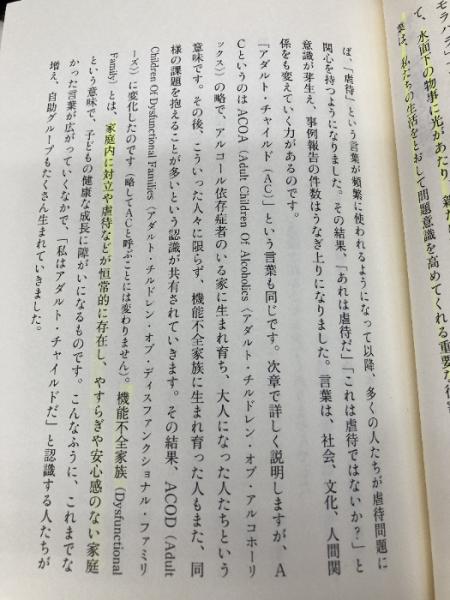 モラハラ
て、水面下の物事に光があたり、
葉は、私たちの生活をとおして問題意識を高めてくれる重要な
ば、「虐待」という言葉が頻繁に使われるようになって以降、多くの人たちが虐待問題に
関心を持つようになりました。その結果、「あれは虐待だ」「これは虐待ではないか？」と
意識が芽生え、事例報告の件数はうなぎ上りになりました。言葉は、社会、文化、人間関
係をも変えていく力があるのです。
「アダルト・チャイルド（AC）」という言葉も同じです。次章で詳しく説明しますが、A
CというのはACOA（Adult Children Of Alcoholics〈アダルト・チルドレン・オブ・アルコホーリ
ックス〉）の略で、アルコール依存症者のいる家に生まれ育ち、大人になった人たちという
意味です。その後、こういった人々に限らず、機能不全家族に生まれ育った人もまた、同
様の課題を抱えることが多いという認識が共有されていきます。その結果、ACOD（Adult
Children Of Dysfunctional Families〈アダルト・チルドレン・オブ・ディスファンクショナル・ファミリ
ーズ〉）に変化したのです（略してACと呼ぶことには変わりません）。機能不全家族（Dysfunctional
Family）とは、家庭内に対立や虐待などが恒常的に存在し、やすらぎや安心感のない家庭
という意味で、子どもの健康な成長に障がいになるものです。こんなふうに、これまでな
かった言葉が広がっていくなかで、「私はアダルト・チャイルドだ」と認識する人たちが
増え、自助グループもたくさん生まれていきました。